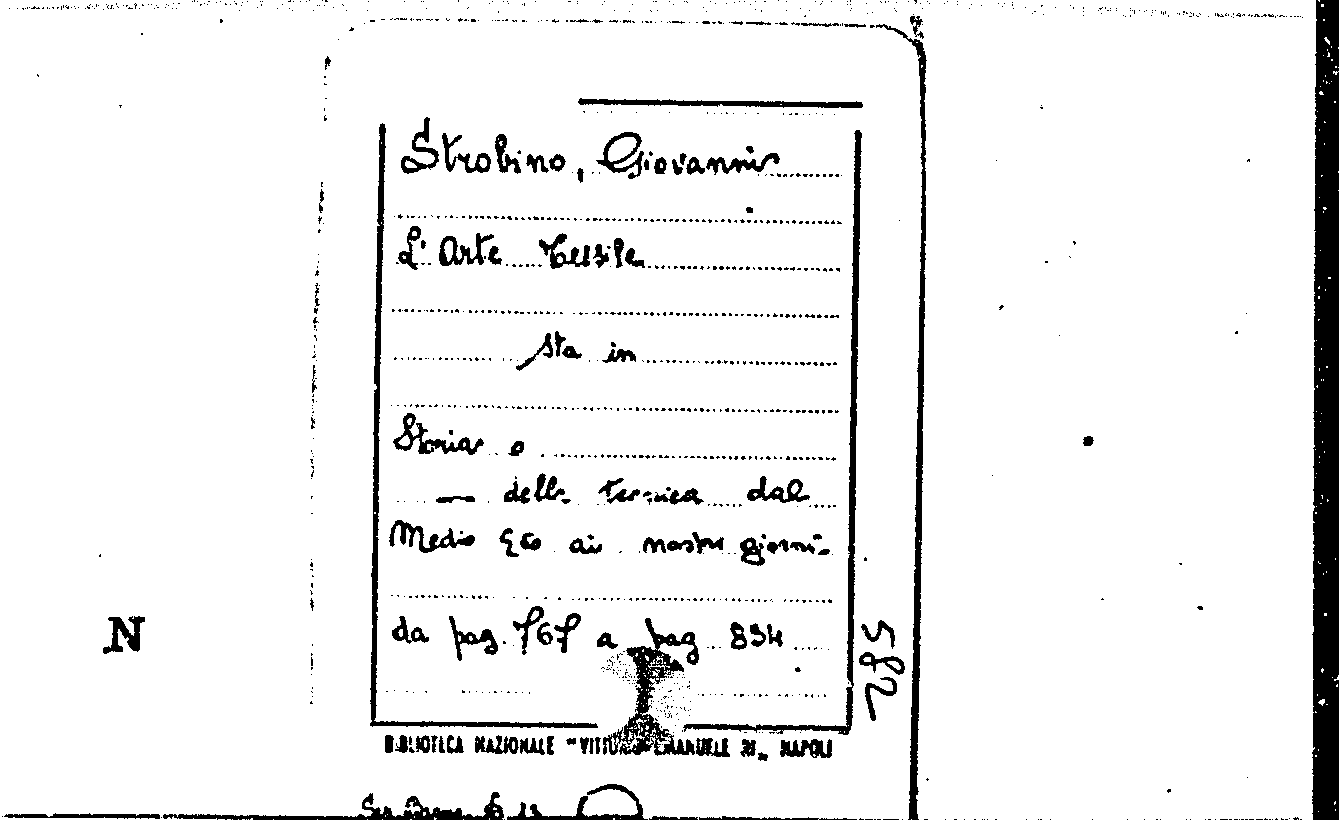 Strobino, Giovanni
L'Arte Tessile
sta in
Storia e
— della tecnica dal
Medio Evo ai nostri giorni
da pag. 767 a pag 834
582
N
BIBLIOTECA NAZIONALE "VITTORIO EMANUELE III„ NAPOLI